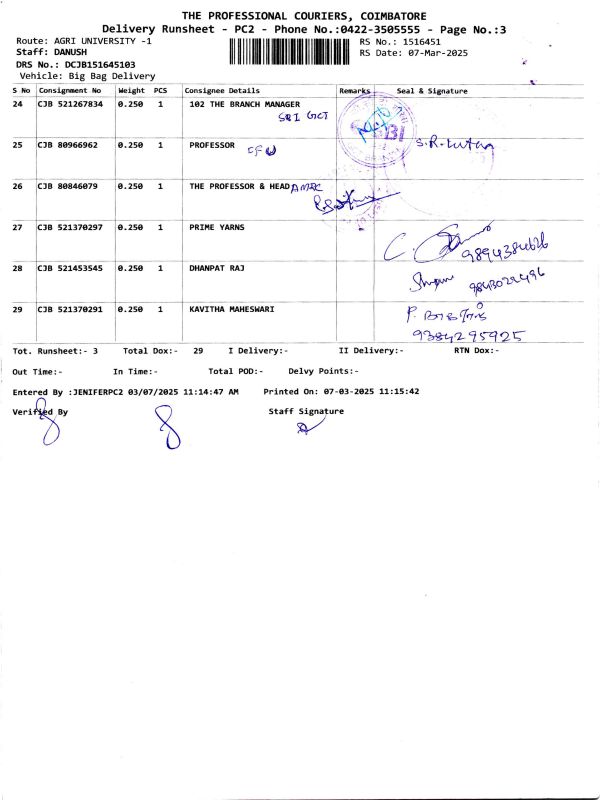 THE PROFESSIONAL COURIERS, COIMBATORE
Delivery Runsheet - PC2 - Phone No.:0422-3505555 - Page No.:3
Route: AGRI UNIVERSITY -1 RS No.: 1516451
Staff: DANUSH RS Date: 07-Mar-2025
DRS No.: DCJB151645103
Vehicle: Big Bag Delivery
S No Consignment No Weight PCS Consignee Details Remarks Seal & Signature
24 CJB 521267834 0.250 1 102 THE BRANCH MANAGER
SBI GCT
25 CJB 80966962 0.250 1 PROFESSOR
26 CJB 80846079 0.250 1 THE PROFESSOR & HEAD
27 CJB 521370297 0.250 1 PRIME YARNS
28 CJB 521453545 0.250 1 DHANPAT RAJ
29 CJB 521370291 0.250 1 KAVITHA MAHESWARI
9384295925
Tot. Runsheet:- 3 Total Dox:- 29 I Delivery:- II Delivery:- RTN Dox:-
Out Time:- In Time:- Total POD:- Delvy Points:-
Entered By :JENIFERPC2 03/07/2025 11:14:47 AM Printed On: 07-03-2025 11:15:42
Verified By Staff Signature